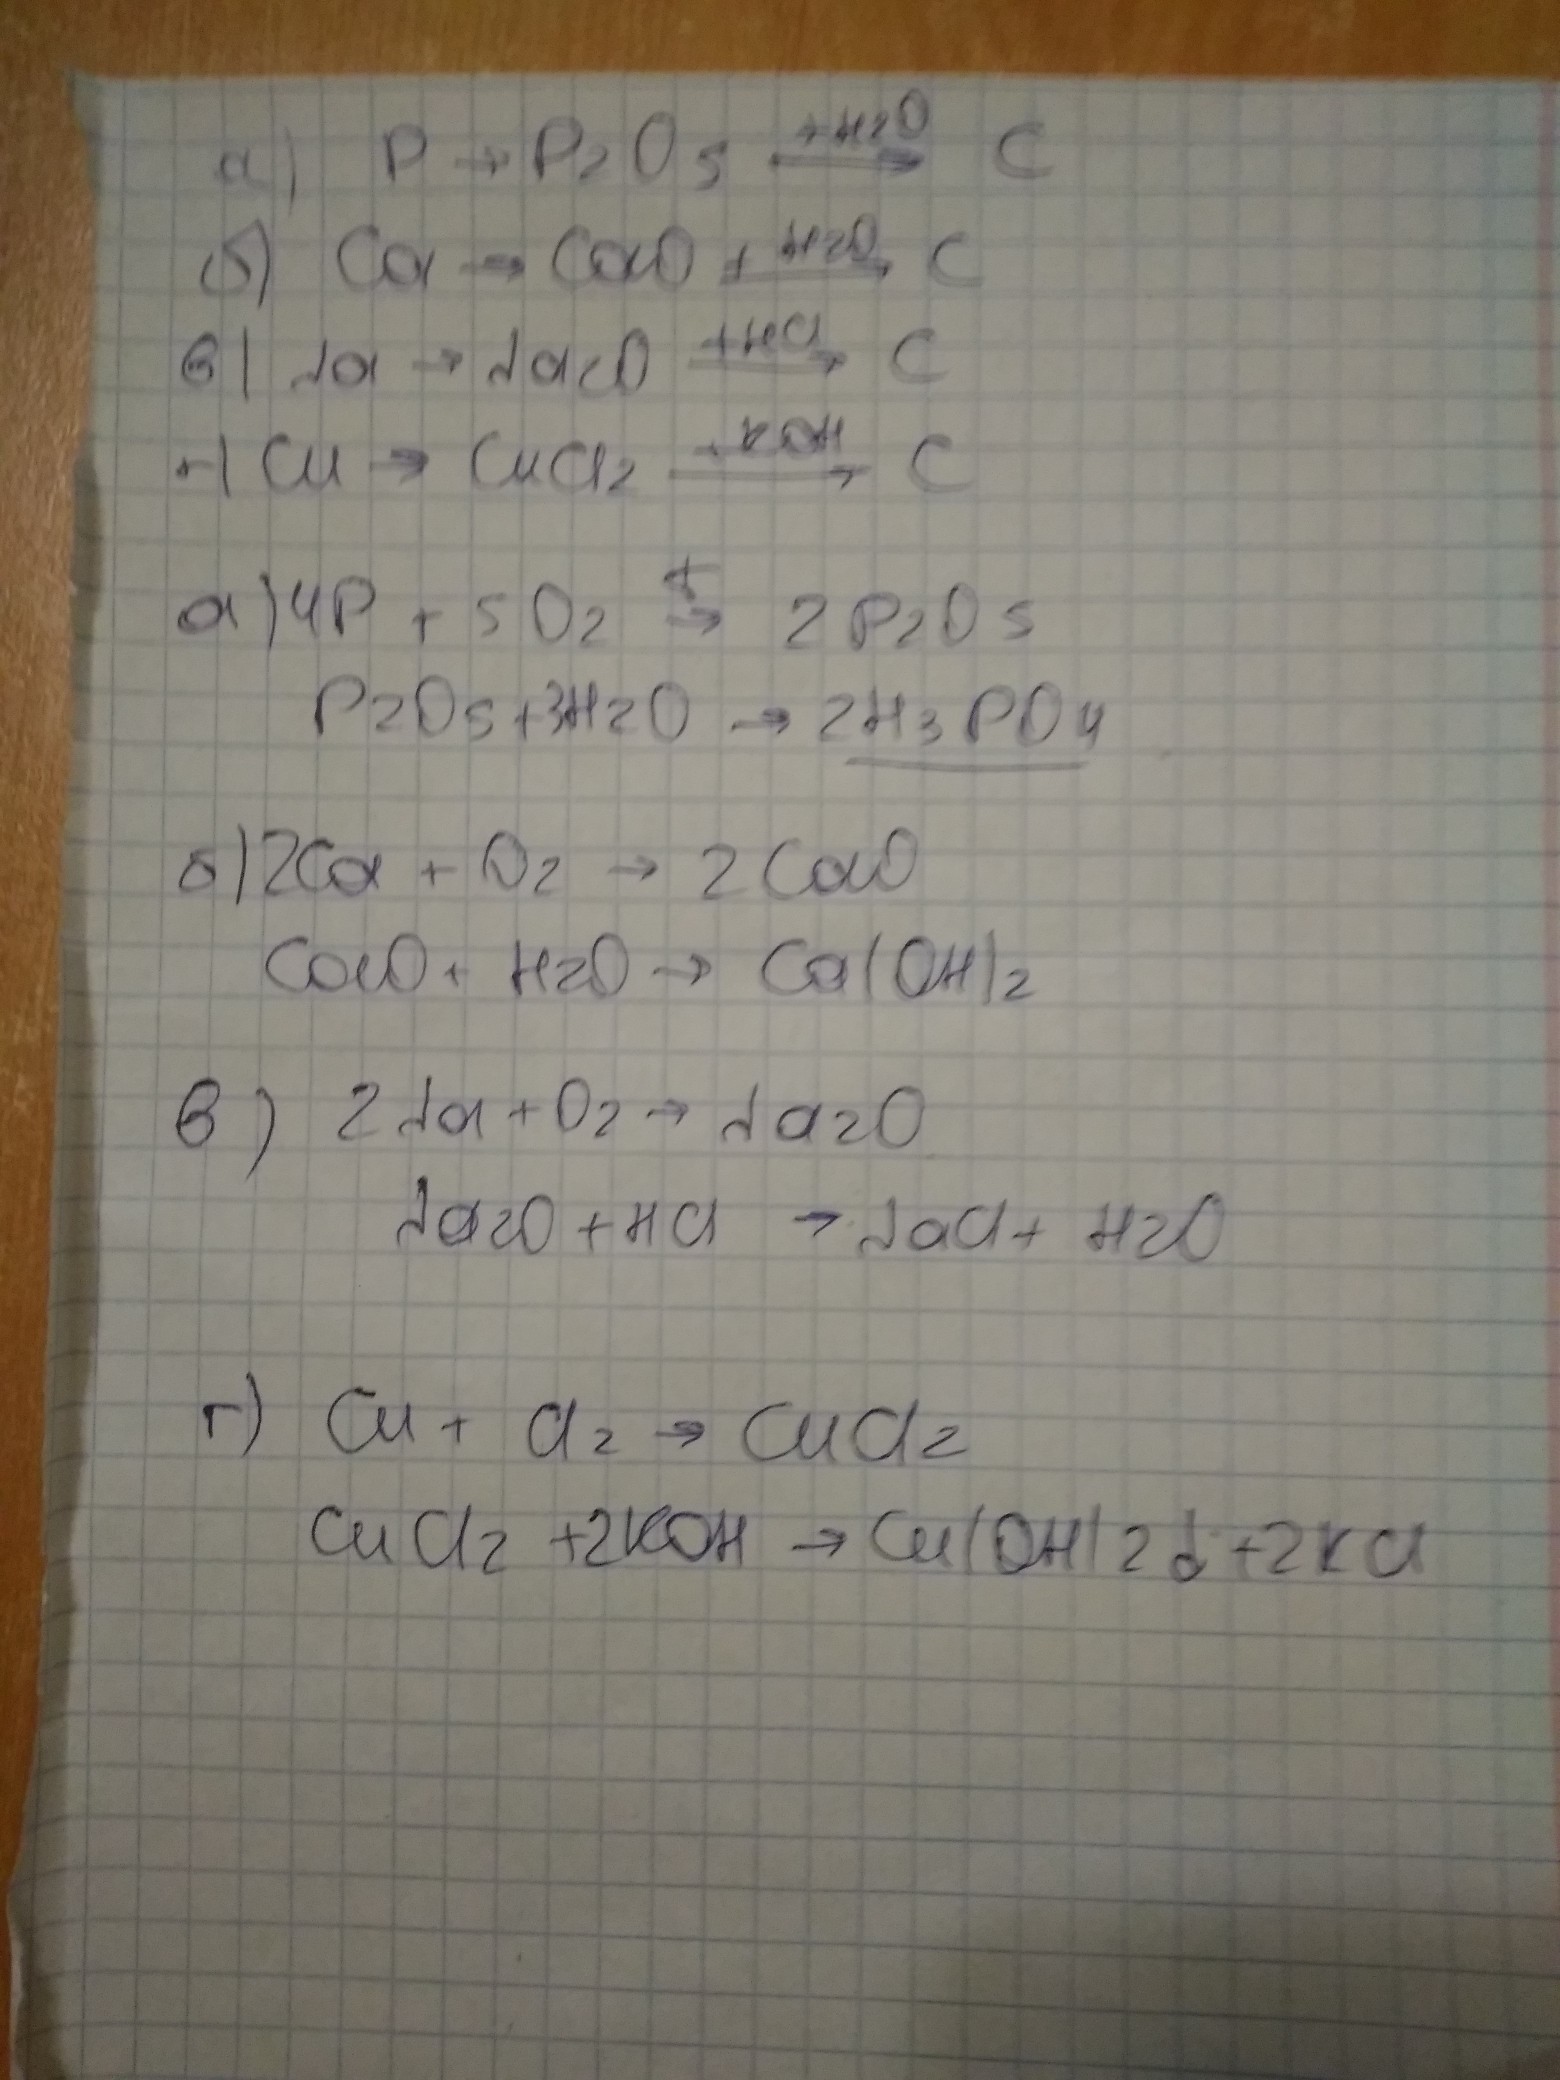 а) P → P2O5 +H2O → C
б) Ca → CaO +H2O → C
в) Na → Na2O +HCl → C
г) Cu → CuCl2 +KOH → C
а) 4P + 5O2 t→ 2P2O5
P2O5+3H2O → 2H3PO4
б) 2Ca + O2 → 2CaO
CaO + H2O → Ca(OH)2
в) 2Na + O2 → Na2O
Na2O + HCl → NaCl + H2O
г) Cu + Cl2 → CuCl2
CuCl2 +2KOH → Cu(OH)2↓ +2KCl